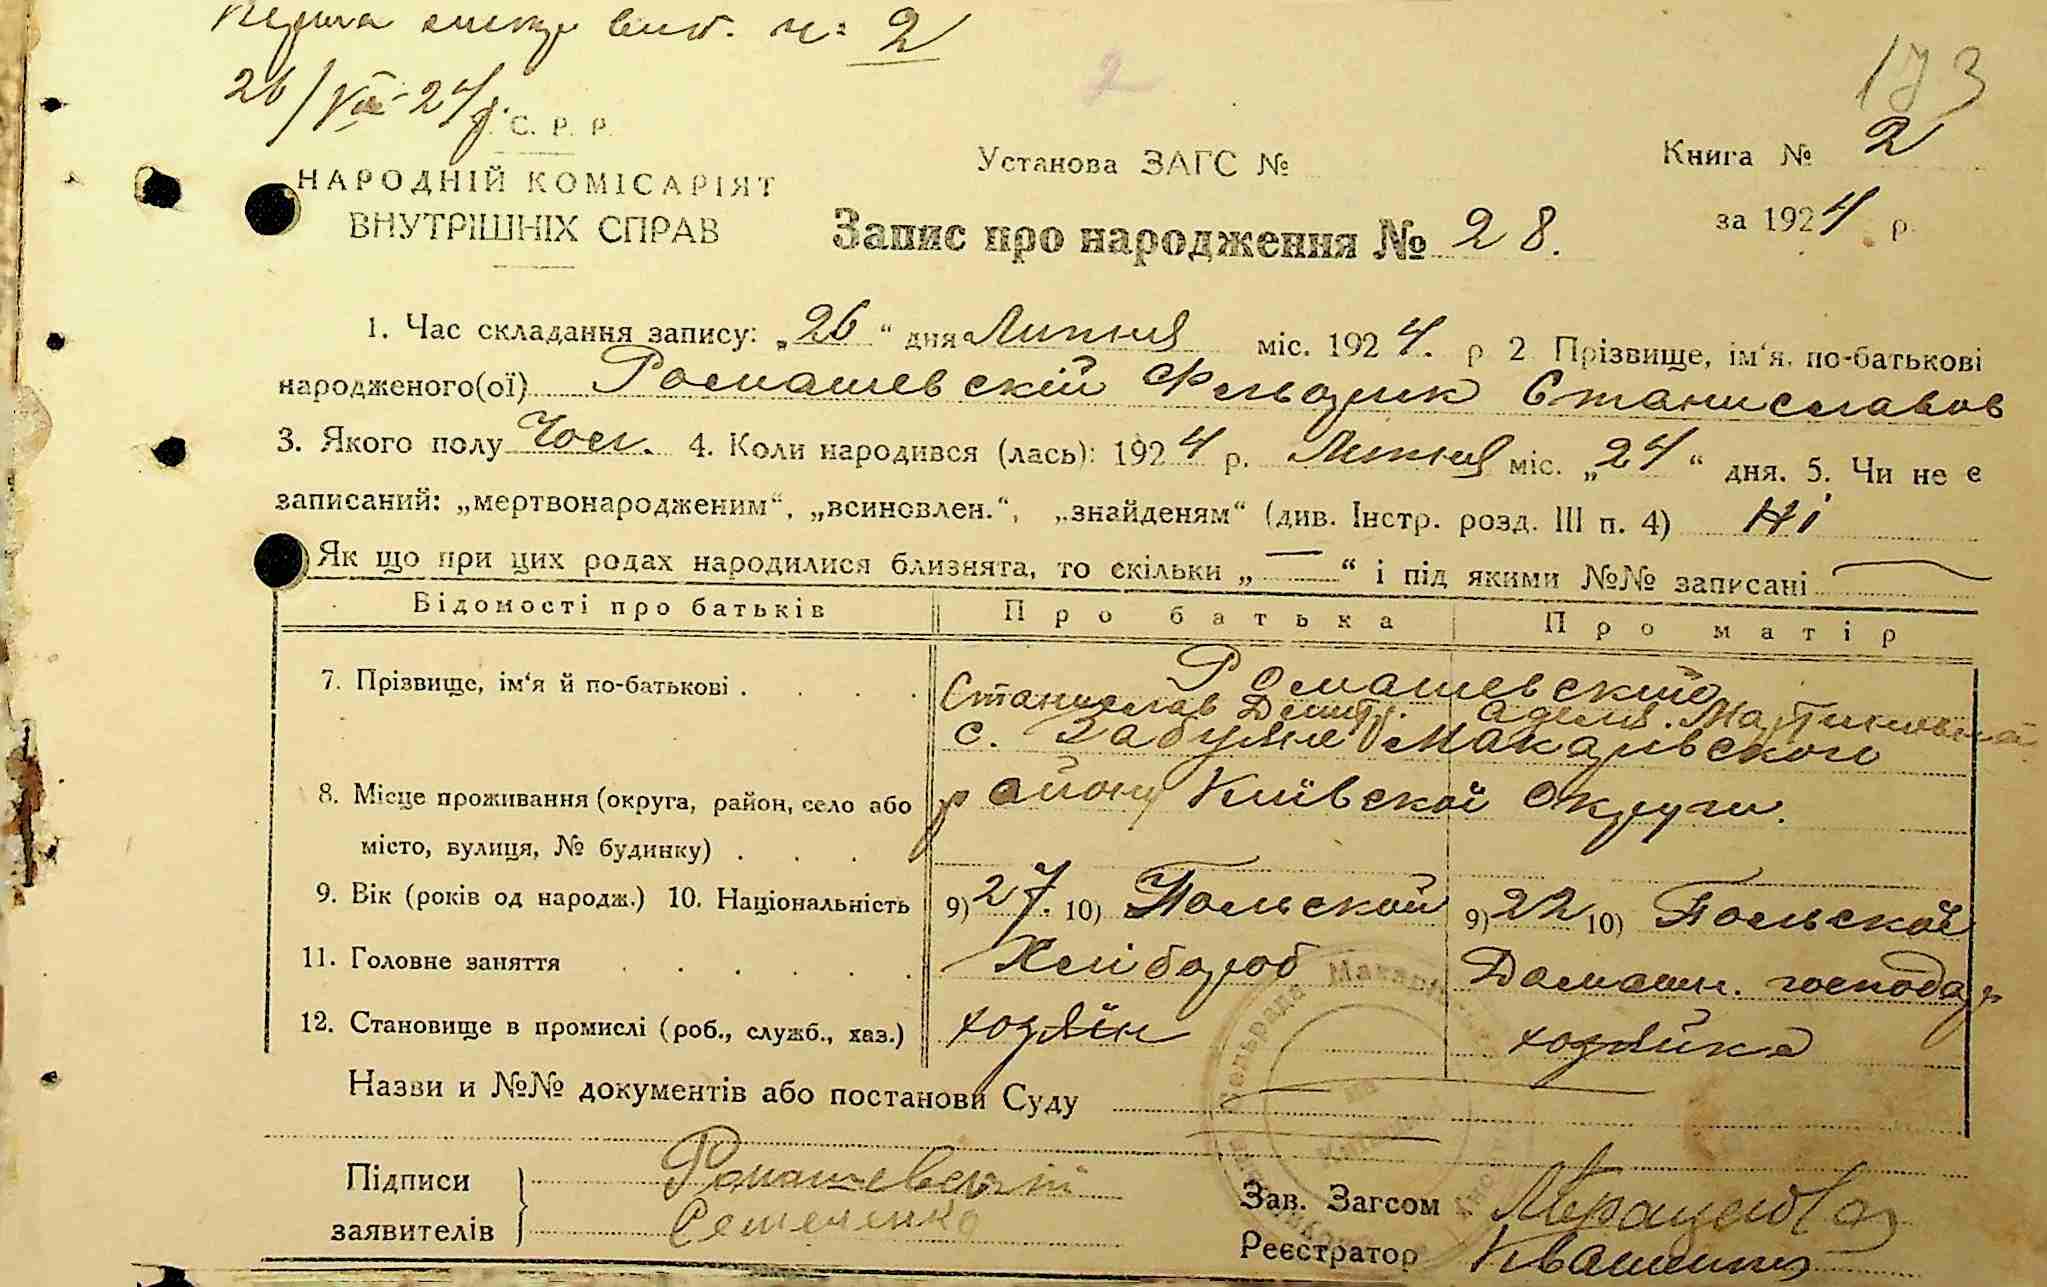 вип. н: 2
26/VII-24 р.
2
173
С. Р. Р.
НАРОДНІЙ КОМІСАРІЯТ
ВНУТРІШНІХ СПРАВ
Установа ЗАГС №
Книга № 2
за 1924 р.
Запис про народження № 28.
1. Час складання запису: „26“ дня Липня міс. 1924. р 2 Прізвище, ім‘я, по-батькові
народженого(ої) Ромашевскій Фельдик Станиславов
3. Якого полу Чол. 4. Коли народився (лась): 1924 р. Липня міс. „24“ дня. 5. Чи не є
записаний: „мертвонародженим“, „всиновлен.“, „знайденям“ (див. Інстр. розд. III п. 4) Ні
Як що при цих родах народилися близнята, то скільки „—“ і під якими №№ записані —
Відомості про батьків Про батька Про матір
7. Прізвище, ім‘я й по-батькові . . . . Ромашевские
Станислав Дмитр. Аделя. Мартиновна
с. Забуяне Макарівского
8. Місце проживання (округа, район, село або району Київскої Округи.
місто, вулиця, № будинку) . . .
9. Вік (років од народж.) 10. Національність 9) 27. 10) Польской 9) 22 10) Польскої
11. Головне заняття . . . . . . Хлібороб Домашн. господар
12. Становище в промислі (роб., служб., хаз.) хозяїн хозяйка
Назви и №№ документів або постанови Суду
Підписи Ромашевский
заявителів
Зав. Загсом
Реєстратор